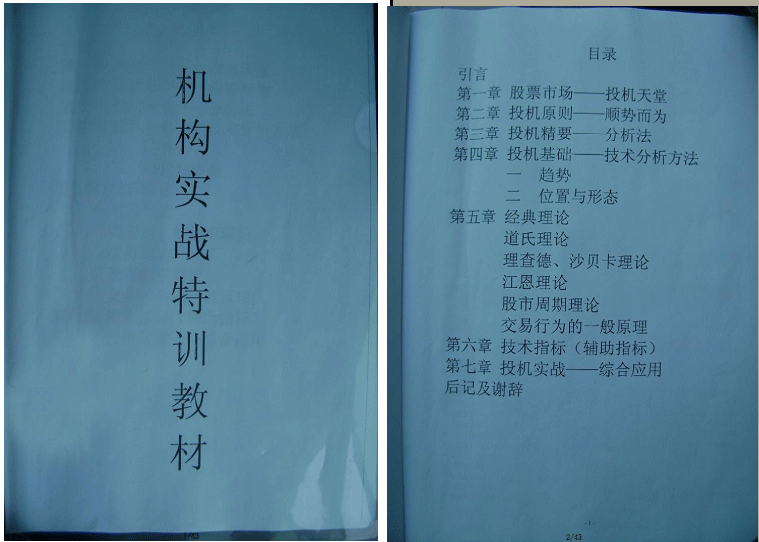 机构实战特训教材
1/43
目录
引言
第一章 股票市场——投机天堂
第二章 投机原则——顺势而为
第三章 投机精要——分析法
第四章 投机基础——技术分析方法
一 趋势
二 位置与形态
第五章 经典理论
道氏理论
理查德、沙贝卡理论
江恩理论
股市周期理论
交易行为的一般原理
第六章 技术指标（辅助指标）
第七章 投机实战——综合应用
后记及谢辞
-1-
2/43